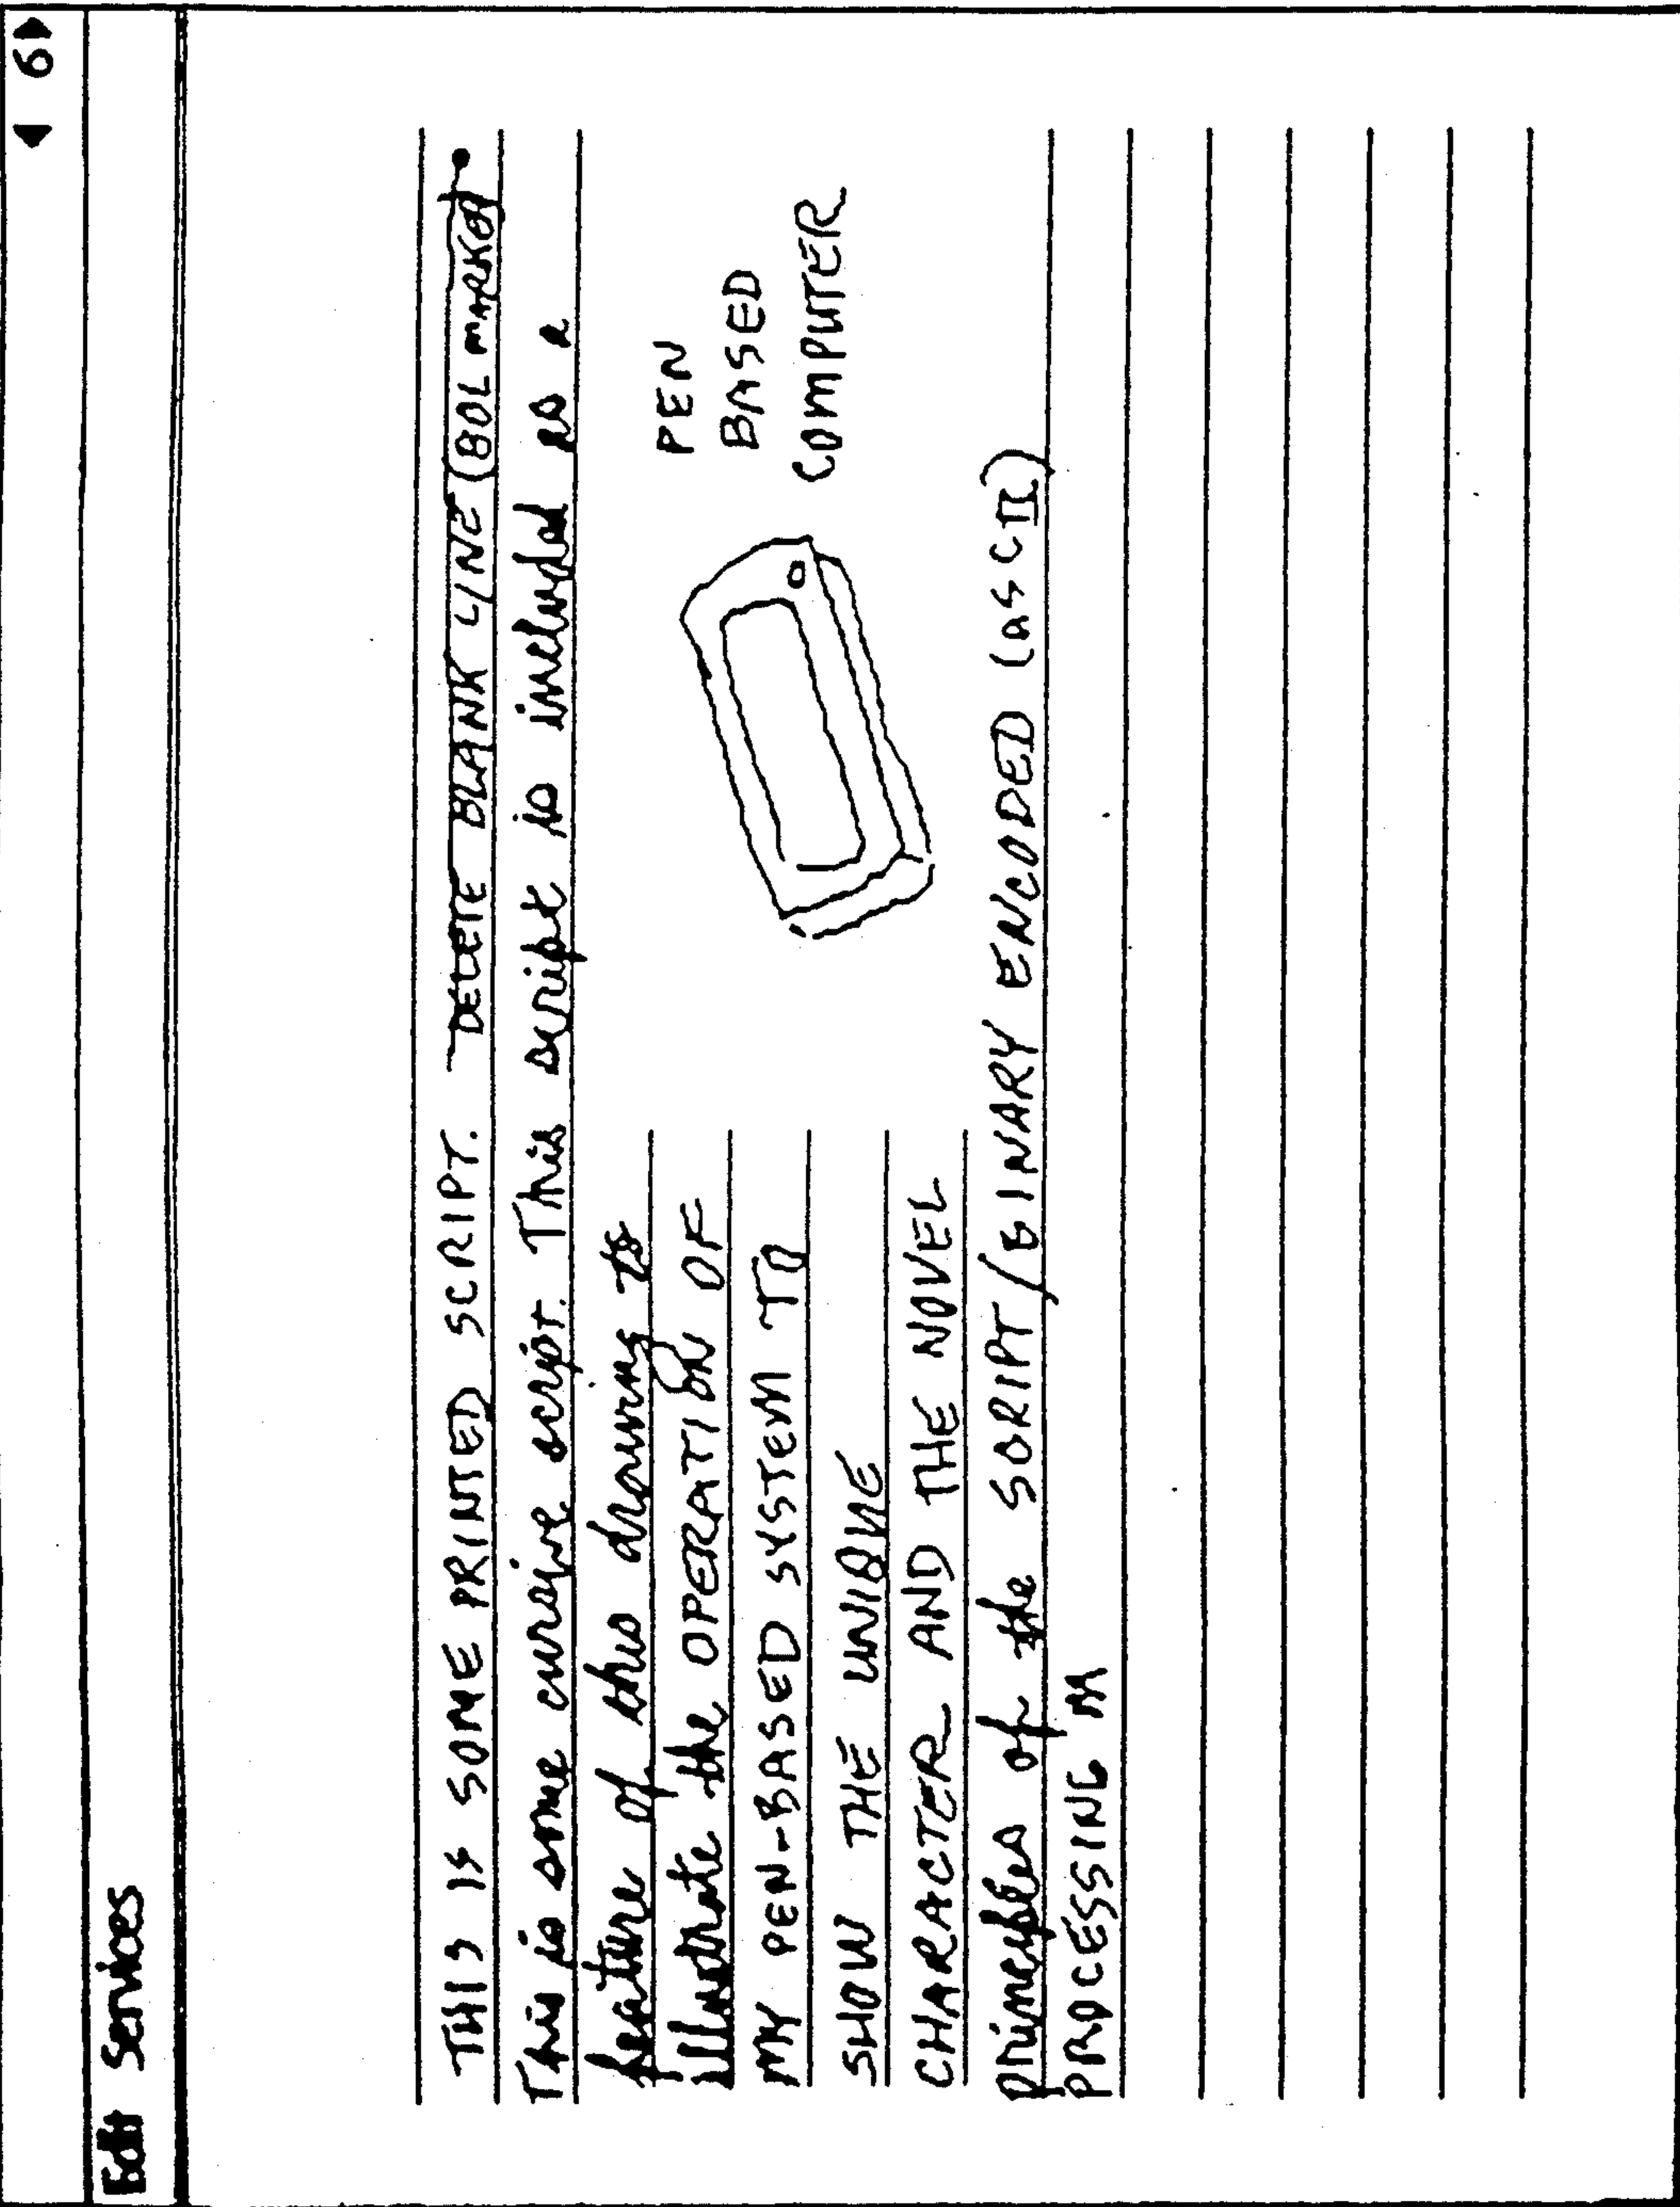 6
Edit Services
THIS IS SOME PRINTED SCRIPT. DELETE BLANK LINE (BOL MARKER)
This is some cursive script. This script is included as a
feature of this drawing to
illustrate the OPERATION OF
MY PEN-BASED SYSTEM TO
SHOW THE UNIQUE
CHARACTER AND THE NOVEL
PEN
BASED
COMPUTER
principles of the SCRIPT/BINARY ENCODED (ASCII)
PROCESSING